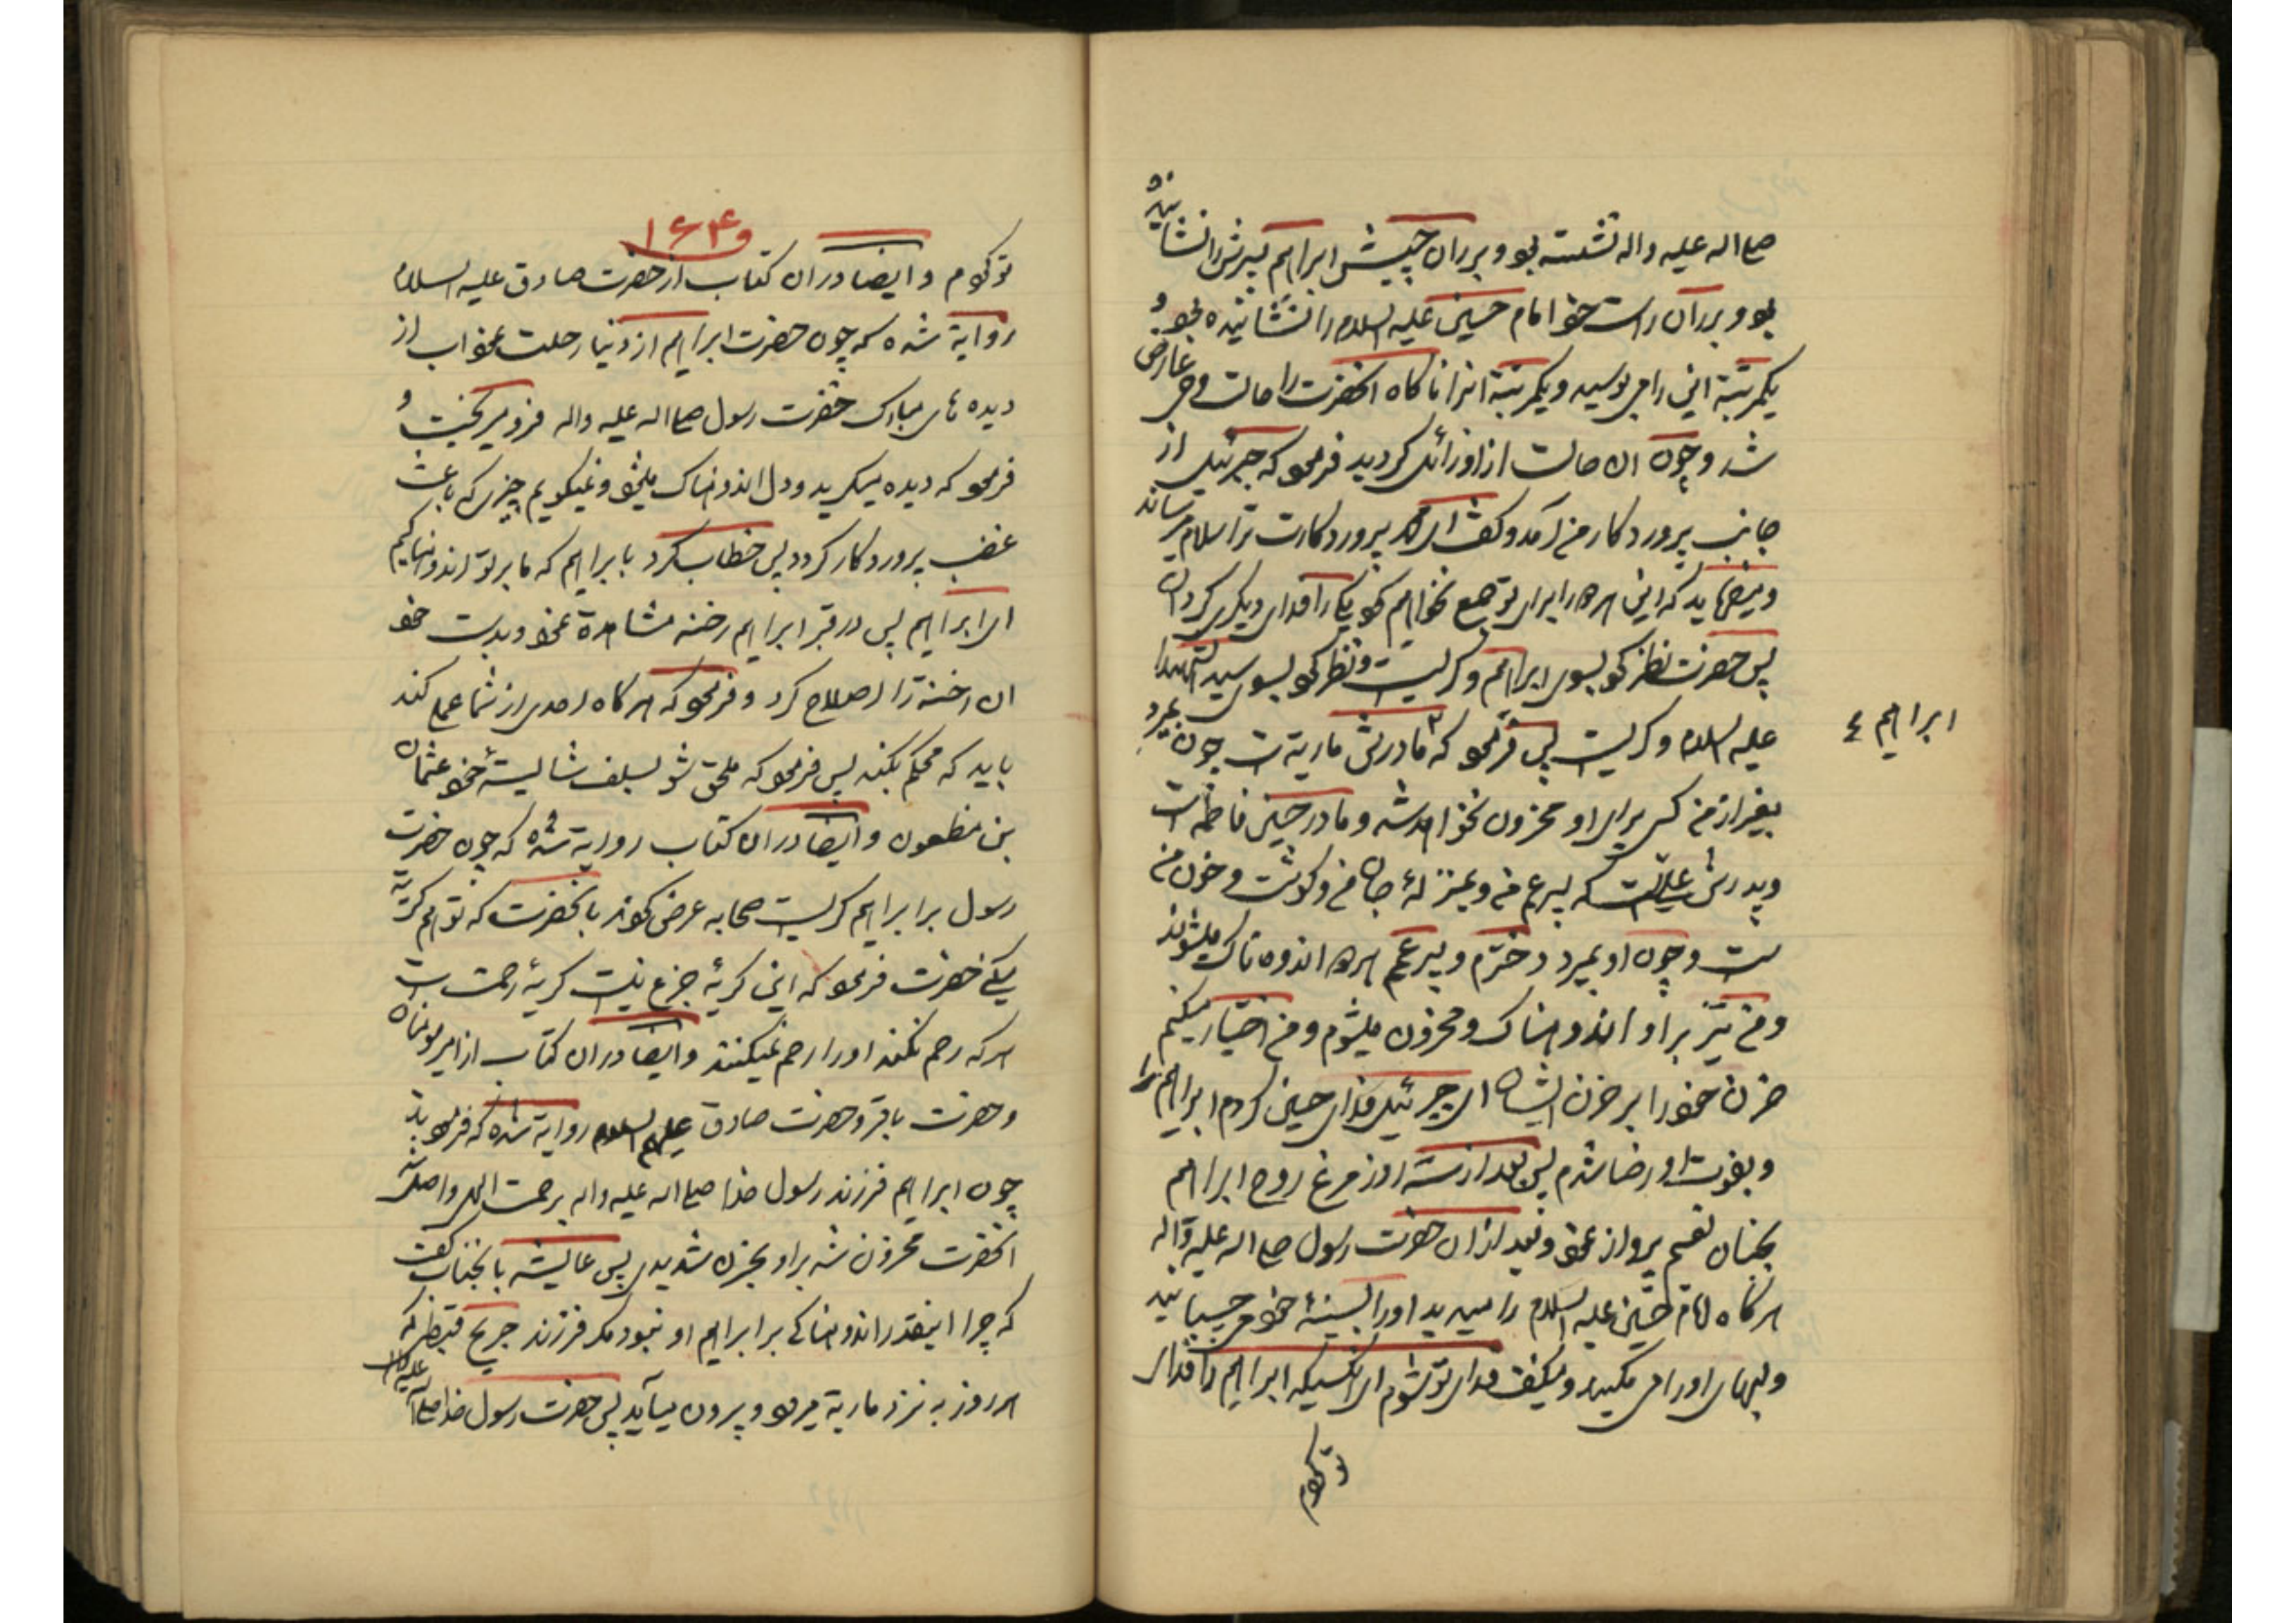 صلی اله علیه واله نشسته بود و بر ران چپش ابراهیم پسرش را نشانیده
بود و بر ران راست خود امام حسین علیه السلام را نشانیده بود و
یکمرتبة این را می بوسید و یکمرتبة انرا ناکاه انحضرت را حالت وحی عارض
شد و چون ان حالت از او زائل کردید فرمود که جبرئیل از
جانب پروردکار من آمد و کفت ای محمد پروردکارت ترا سلام میرساند
و میفرماید که این هر دو را برای تو جمع نخواهم کرد یکی را فدای دیکری کردان
پس حضرت نظر کرد بسوی ابراهیم و کریست و نظر کرد بسوی سید الشهدا
علیه السلام و کریست پس فرمود که مادرش ماریة است چون بمیرد
ابراهیم ع
بغیر از من کسی برای او محزون نخواهد شد و مادر حسین فاطمه است
و پدرش علی است که پسر عم من و بمنزلهٔ جان من و کوشت و خون من
ست و چون او بمیرد دخترم و پسر عمم هر دو اندوه ناک میشوند
و من نیز بر او اندوهناک و محزون میشوم و من اختیار میکنم
حزن خود را بر حزن ایشان ای جبرئیل فدای حسین کردم ابراهیم را
و بفوت او رضا شدم پس بعد از سه روز مرغ روح ابراهیم
بجنان نعیم پرواز نمود و بعد از ان حضرت رسول صلی اله علیه واله
هرکاه امام حسین علیه السلام را میدید او را بسینهٔ خود می چسبانید
و لبهای او را می مکید و میکفت فدای تو شوم ای انکسیکه ابراهیم را فدای
تو کردم
۱۶۴
تو کردم و ایضا در ان کتاب از حضرت صادق علیه السلام
روایة شده که چون حضرت ابراهیم از دنیا رحلت نمود اب از
دیده های مبارک حضرت رسول صلی اله علیه واله فرو میریخت و
فرمود که دیده میکرید و دل اندوهناک میشود و نمیکویم چیزی که باعث
غضب پروردکار کردد پس خطاب کرد بابراهیم که ما بر تو اندوهناکیم
ای ابراهیم پس در قبر ابراهیم رخنه مشاهدة نمود و بدست خود
ان رخنة را اصلاح کرد و فرمود که هرکاه احدی از شما عملی کند
باید که محکم بکند پس فرمود که ملحق شو بسلف شایستهٔ خود عثمان
بن مظعون و ایضا در ان کتاب روایة شده که چون حضرت
رسول بر ابراهیم کریست صحابه عرض کردند بانحضرت که تو هم کریة
میکنی حضرت فرمود که این کریهٔ جزع نیست کریهٔ رحمت است
هر که رحم نکند او را رحم نمیکنند و ایضا در ان کتاب از امیر مومنان
و حضرت باقر و حضرت صادق علیهم السلام روایة شده که فرمودند
چون ابراهیم فرزند رسول خدا صلی اله علیه واله برحمت الهی واصل شد
انحضرت محزون شد بر او بحزن شدیدی پس عایشه بانجناب کفت
که چرا اینقدر اندوهناکی بر ابراهیم او نبود مکر فرزند جریح قبطی که
هر روز به نزد ماریة میرود و بیرون میآید پس حضرت رسول خدا صلی اله علیه واله